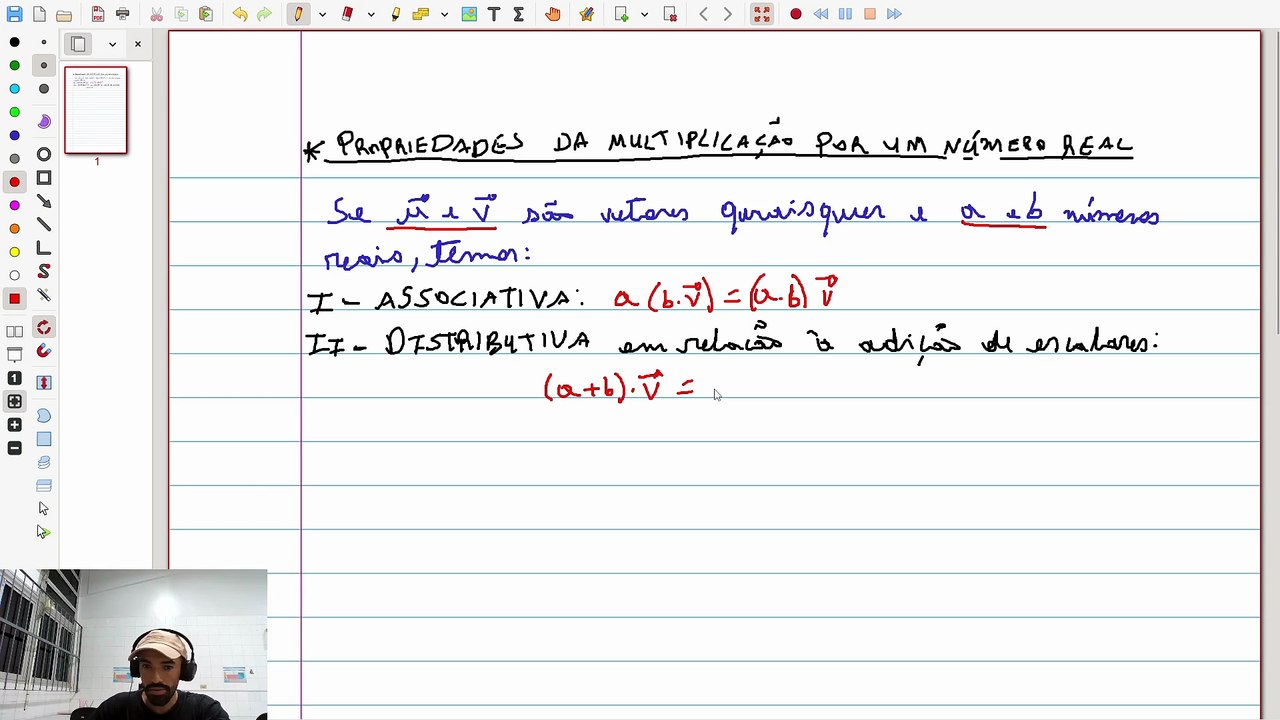 * PROPRIEDADES DA MULTIPLICAÇÃO POR UM NÚMERO REAL
Se u⃗ e v⃗ são vetores quaisquer e a e b números
reais, temos:
I - ASSOCIATIVA: a (b.v⃗) = (a.b) v⃗
II - DISTRIBUTIVA em relação à adição de escalares:
(a+b).v⃗ =
1